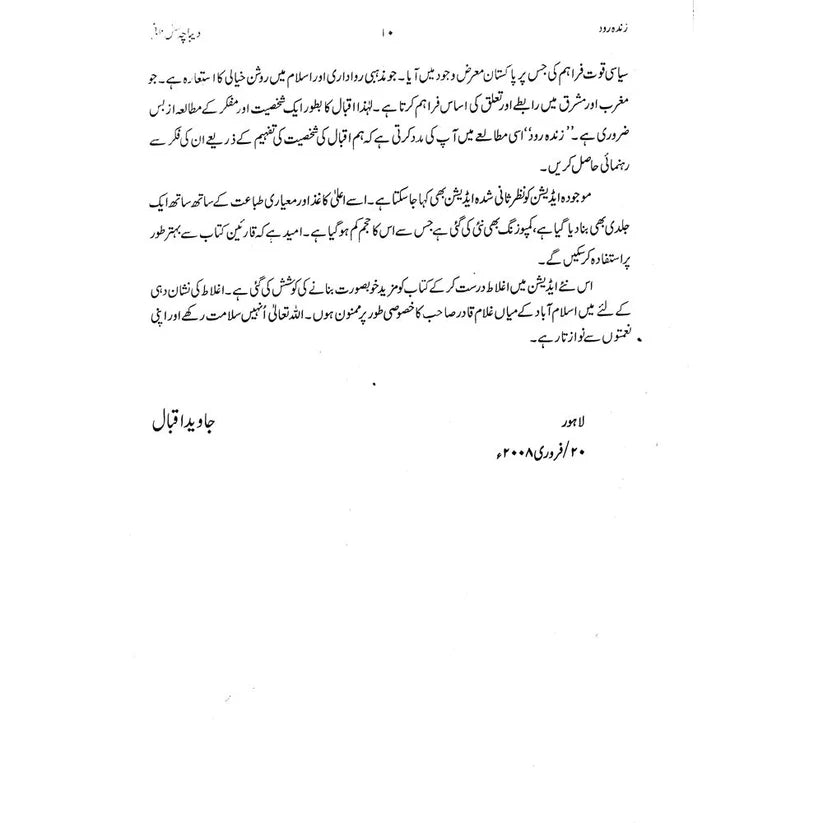 زندہ رود ۱۰ دیباچہ
سیاسی قوت فراہم کی جس پر پاکستان معرض وجود میں آیا۔ جو مذہبی رواداری اور اسلام میں روشن خیالی کا استعارہ ہے۔ جو
مغرب اور مشرق میں رابطے اور تعلق کی اساس فراہم کرتا ہے۔ لہٰذا اقبال کا بطور ایک شخصیت اور مفکر کے مطالعہ از بس
ضروری ہے۔ ’’زندہ رود‘‘ اسی مطالعے میں آپ کی مدد کرتی ہے کہ ہم اقبال کی شخصیت کی تفہیم کے ذریعے ان کی فکر سے
رہنمائی حاصل کریں۔
موجودہ ایڈیشن کو نظر ثانی شدہ ایڈیشن بھی کہا جا سکتا ہے۔ اسے اعلیٰ کاغذ اور معیاری طباعت کے ساتھ ساتھ ایک
جلدی بھی بنا دیا گیا ہے، کمپوزنگ بھی نئی کی گئی ہے جس سے اس کا حجم کم ہو گیا ہے۔ امید ہے کہ قارئین کتاب سے بہتر طور
پر استفادہ کر سکیں گے۔
اس نئے ایڈیشن میں اغلاط درست کر کے کتاب کو مزید خوبصورت بنانے کی کوشش کی گئی ہے۔ اغلاط کی نشان دہی
کے لئے میں اسلام آباد کے میاں غلام قادر صاحب کا خصوصی طور پر ممنون ہوں۔ اللہ تعالیٰ اُنہیں سلامت رکھے اور اپنی
نعمتوں سے نوازتا رہے۔
لاہور جاوید اقبال
۲۰/فروری ۲۰۰۸ء